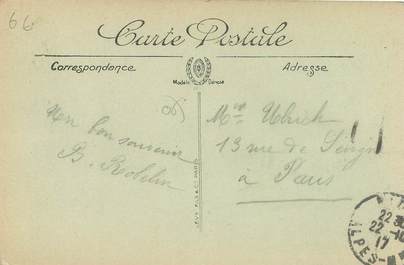 66
Carte Postale
Correspondance
Adresse
Modèle Déposé
Mon bon souvenir
B.
Mme Ulrich
13 rue de
à Paris
22
22-10
17
ALPES-M